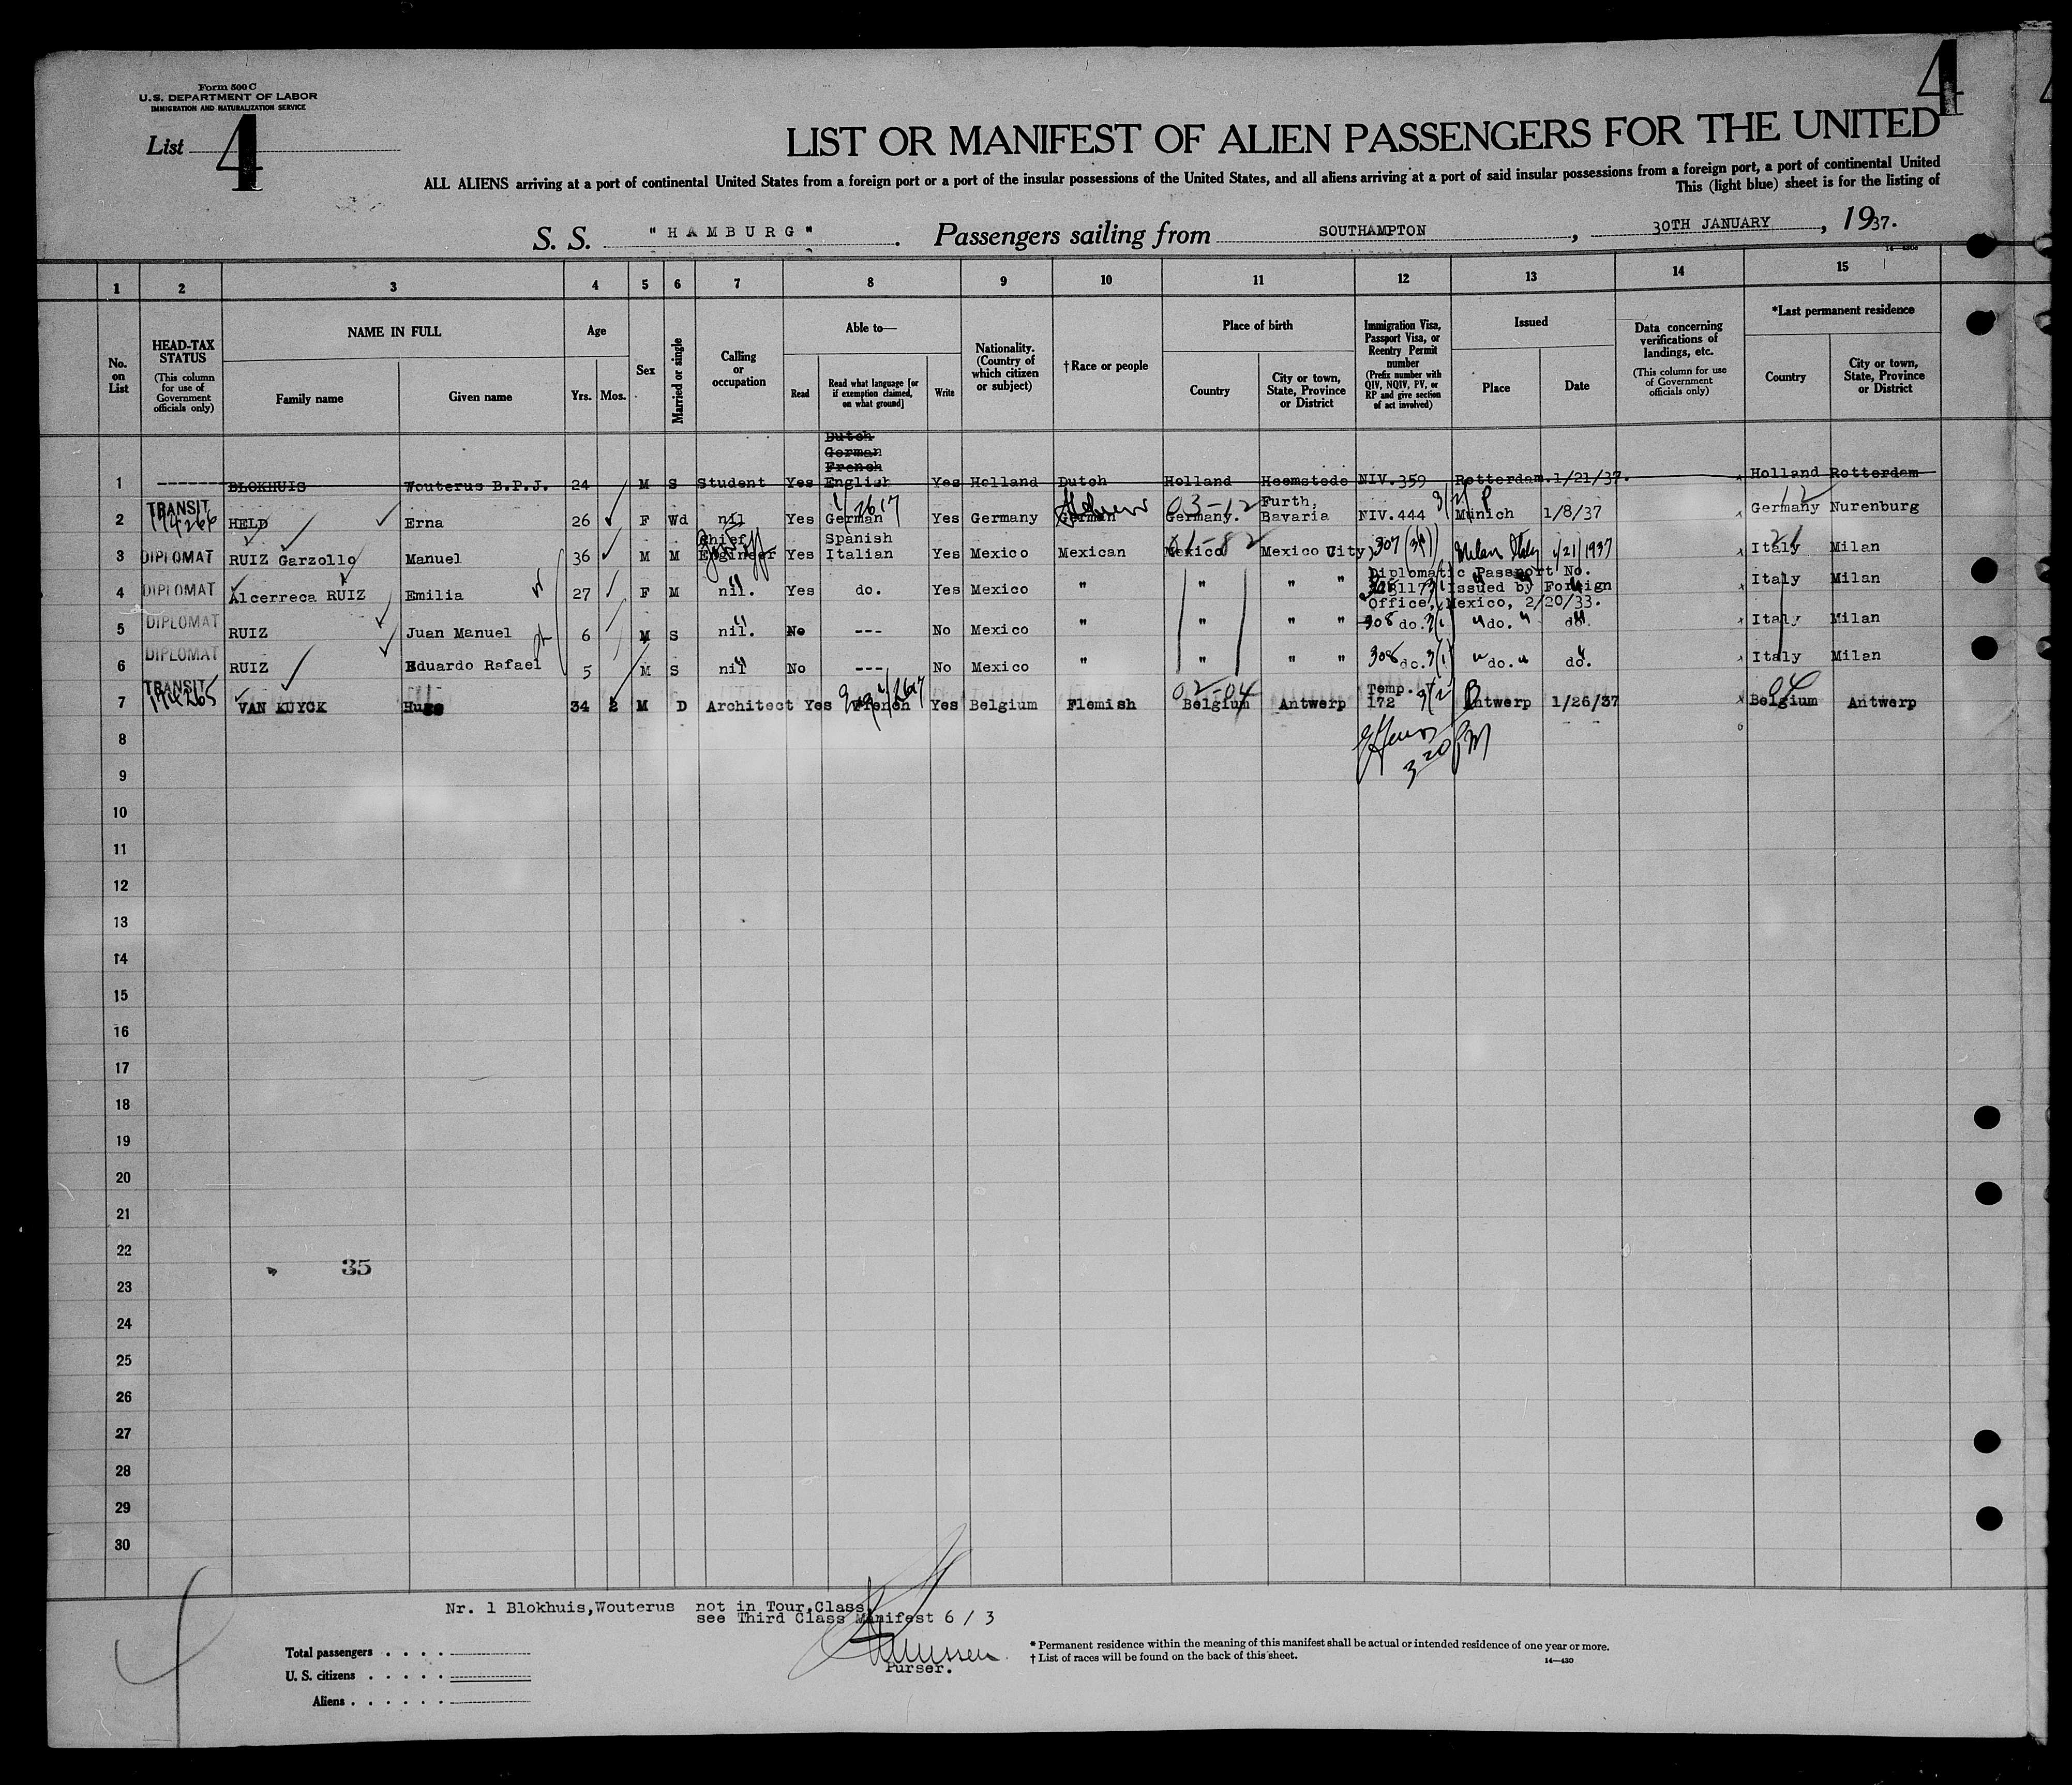 Form 500 C
U.S. DEPARTMENT OF LABOR
IMMIGRATION AND NATURALIZATION SERVICE
List 4
4
LIST OR MANIFEST OF ALIEN PASSENGERS FOR THE UNITED
ALL ALIENS arriving at a port of continental United States from a foreign port or a port of the insular possessions of the United States, and all aliens arriving at a port of said insular possessions from a foreign port, a port of continental United
This (light blue) sheet is for the listing of
S. S. "HAMBURG". Passengers sailing from SOUTHAMPTON, 30TH JANUARY, 1937.
1 2 3 4 5 6 7 8 9 10 11 12 13 14 15
No. on List
HEAD-TAX STATUS
(This column for use of Government officials only)
NAME IN FULL
Family name Given name
Age
Yrs. Mos.
Sex
Married or single
Calling or occupation
Able to—
Read Read what language [or if exemption claimed, on what ground] Write
Nationality. (Country of which citizen or subject)
†Race or people
Place of birth
Country City or town, State, Province or District
Immigration Visa, Passport Visa, or Reentry Permit number
(Prefix number with QIV, NQIV, PV, or RP and give section of act involved)
Issued
Place Date
Data concerning verifications of landings, etc.
(This column for use of Government officials only)
*Last permanent residence
Country City or town, State, Province or District
Dutch
German
French
1 BLOKHUIS Wouterus B.P.J. 24 M S Student Yes English Yes Holland Dutch Holland Heemstede NIV.359 Rotterdam 1/21/37. Holland Rotterdam
2 TRANSIT 194266 HELD Erna 26 F Wd nil Yes German Yes Germany German Hebrew 03-12 Germany. Furth, Bavaria NIV.444 Munich 1/8/37 Germany Nurenburg
3 DIPLOMAT RUIZ Garzollo Manuel 36 M M Chief Engineer Yes Spanish Italian Yes Mexico Mexican Mexico Mexico City 307 Milan Italy 1/21/1937 Italy Milan
4 DIPLOMAT Alcerreca RUIZ Emilia 27 F M nil. Yes do. Yes Mexico " " " " Diplomatic Passport No. Issued by Foreign Office, Mexico, 2/20/33. Italy Milan
5 DIPLOMAT RUIZ Juan Manuel 6 M S nil. No --- No Mexico " " " " 308 do. do. do. Italy Milan
6 DIPLOMAT RUIZ Eduardo Rafael 5 M S nil No --- No Mexico " " " " 308 do. do. do. Italy Milan
7 TRANSIT 194265 VAN KUYCK Hugo 34 2 M D Architect Yes French Yes Belgium Flemish 02-04 Belgium Antwerp Temp. 172 Antwerp 1/26/37 Belgium Antwerp
8
3 20 PM
9
10
11
12
13
14
15
16
17
18
19
20
21
22
35
23
24
25
26
27
28
29
30
Nr. 1 Blokhuis,Wouterus not in Tour.Class
see Third Class Manifest 6 / 3
Purser.
Total passengers
U. S. citizens
Aliens
* Permanent residence within the meaning of this manifest shall be actual or intended residence of one year or more.
† List of races will be found on the back of this sheet.
14—430